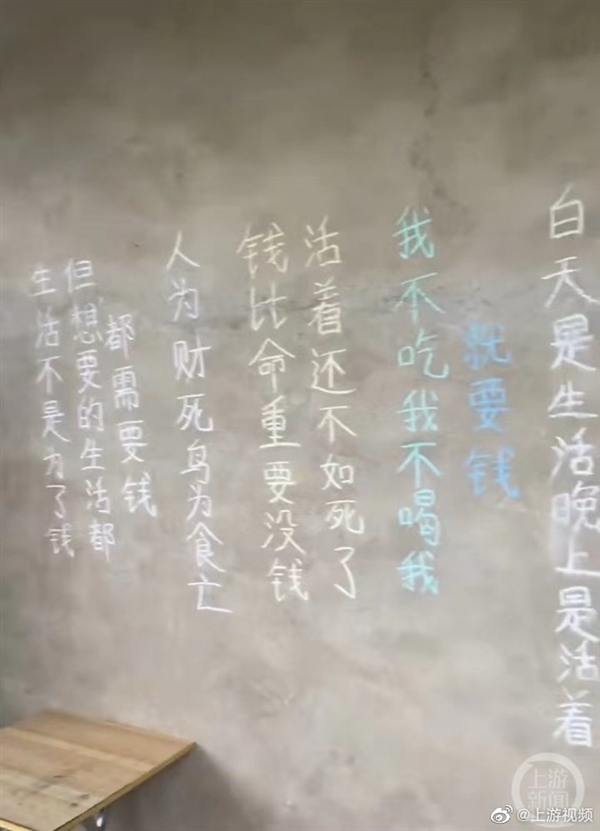 生活不是为了钱
但想要的生活都
都需要钱
人为财死鸟为食亡
钱比命重要没钱
活着还不如死了
我不吃我不喝我
就要钱
白天是生活晚上是活着
上游
新闻
@上游视频